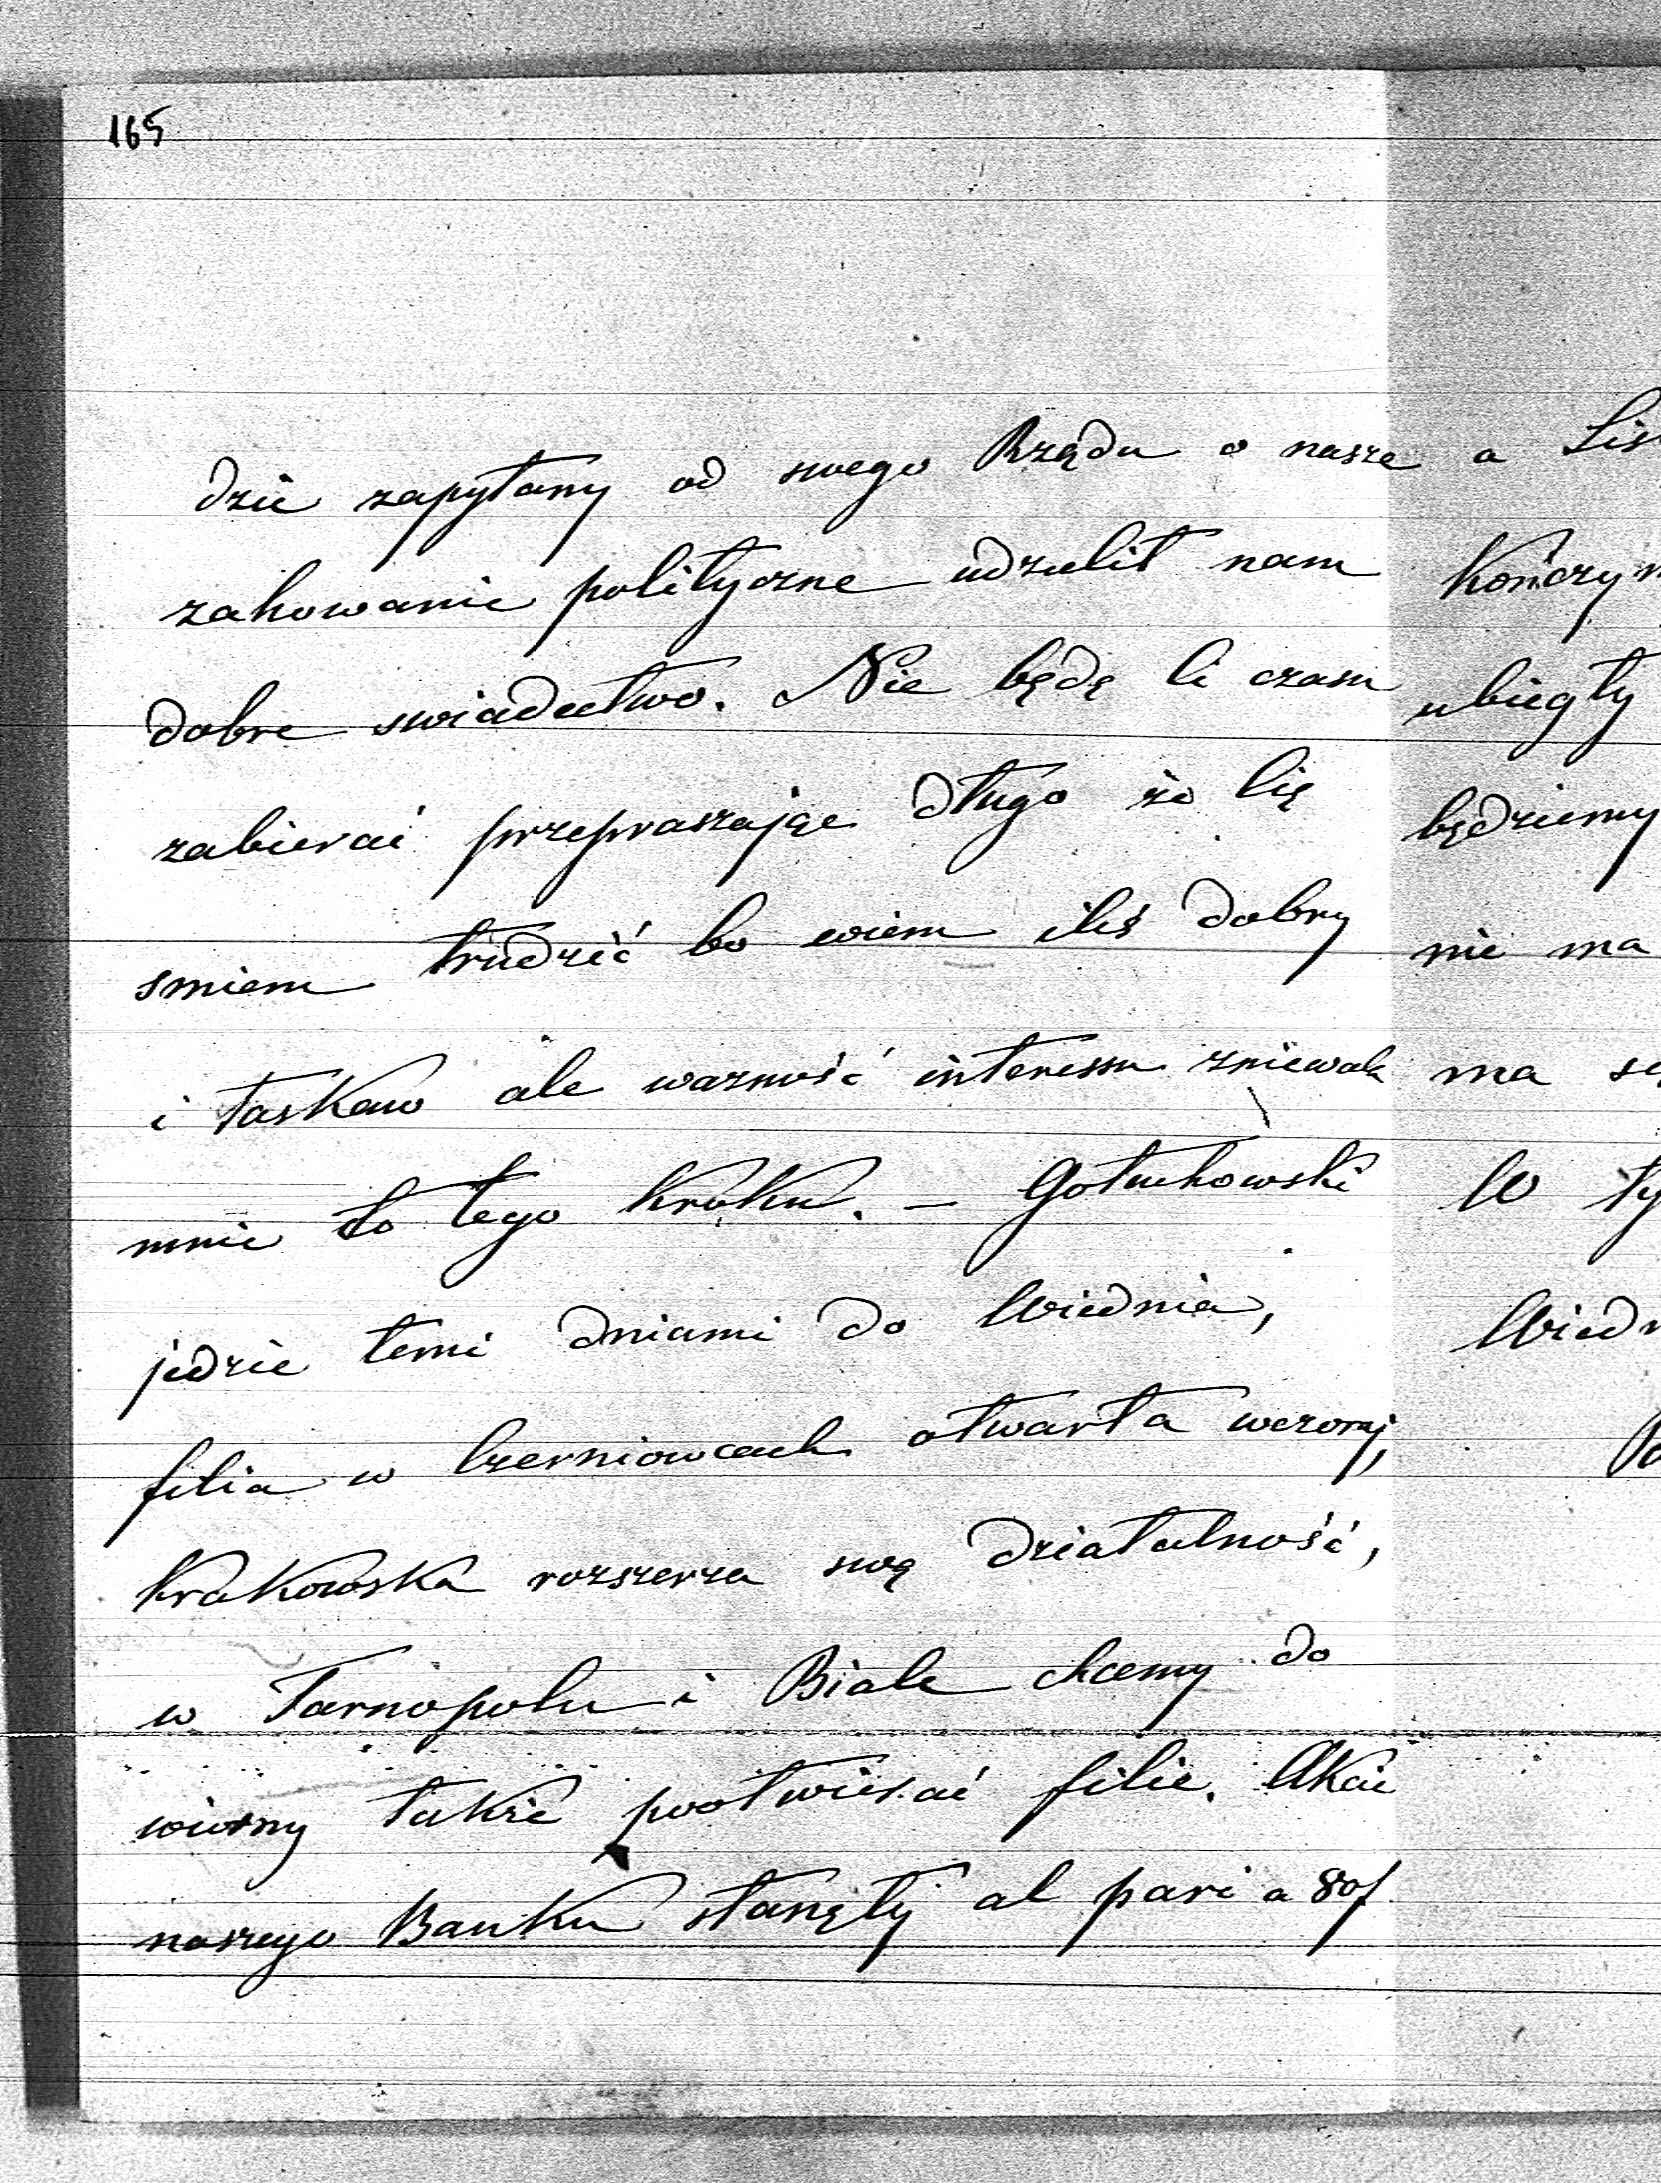 165
dzie zapytany od swego Rządu o nasze
zahowanie polityczne udzielił nam
dobre swiadectwo. Nie będę Ci czasu
zabierać przepraszając długo że Cię
smiem trudzić bo wiem ileś dobry
i łaskaw ale wazność interessu zniewala
mnie do tego kroku. – Gołuchowski
jedzie temi dniami do Wiednia,
filia w Czerniowcach otwarta wczoraj,
Krakowska rozszerza swą działalność,
w Tarnopolu i Biale chcemy do
wiosny także pootwierać filie. Akcie
naszego Banku stanęły al pari a 80f
a Lis
Kończym
ubiegły
będziemy
nie ma
ma się
W ty
Wiedn